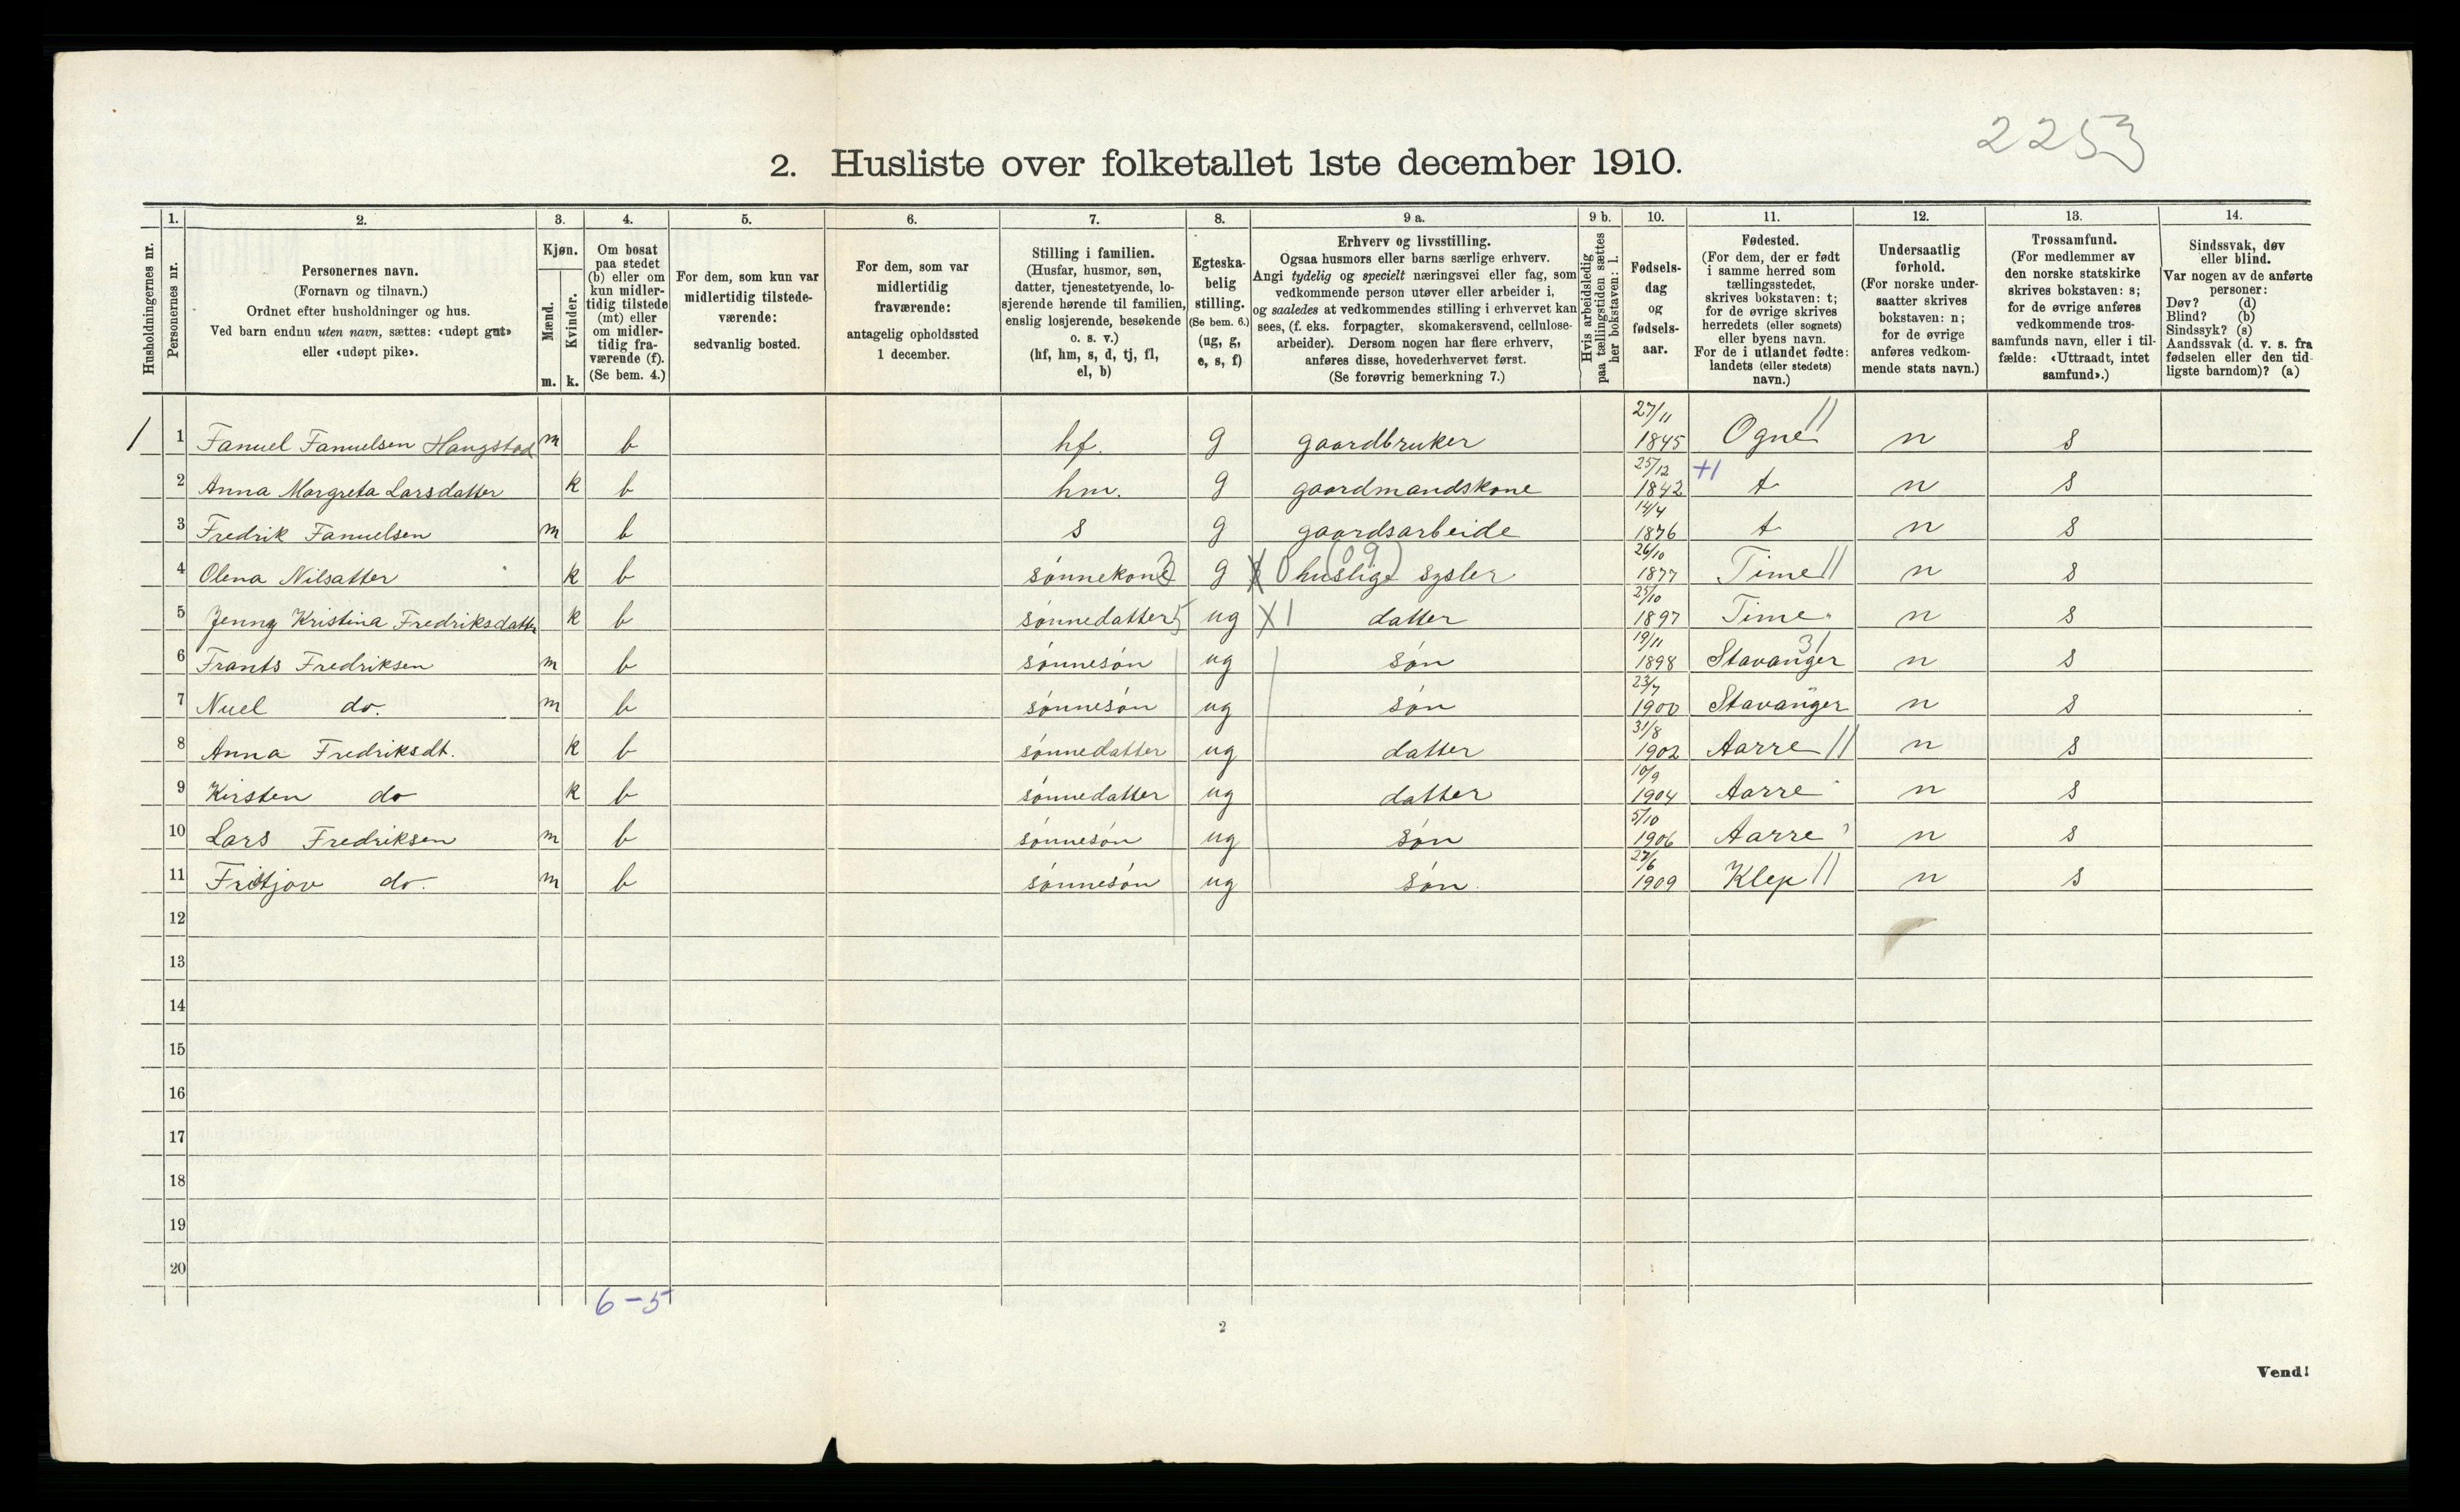 2253
2. Husliste over folketallet 1ste december 1910.
Husholdningernes nr.
1. Personernes nr.
2. Personernes navn.
(Fornavn og tilnavn.)
Ordnet efter husholdninger og hus.
Ved barn endnu uten navn, sættes: «udøpt gut»
eller «udøpt pike».
3. Kjøn.
Mænd. m.
Kvinder. k.
4. Om bosat
paa stedet
(b) eller om
kun midler-
tidig tilstede
(mt) eller
om midler-
tidig fra-
værende (f).
(Se bem. 4.)
5. For dem, som kun var
midlertidig tilstede-
værende:
sedvanlig bosted.
6. For dem, som var
midlertidig
fraværende:
antagelig opholdssted
1 december.
7. Stilling i familien.
(Husfar, husmor, søn,
datter, tjenestetyende, lo-
sjerende hørende til familien,
enslig losjerende, besøkende
o. s. v.)
(hf, hm, s, d, tj, fl,
el, b)
8. Egteska-
belig
stilling.
(Se bem. 6.)
(ug, g,
e, s, f)
9 a. Erhverv og livsstilling.
Ogsaa husmors eller barns særlige erhverv.
Angi tydelig og specielt næringsvei eller fag, som
vedkommende person utøver eller arbeider i,
og saaledes at vedkommendes stilling i erhvervet kan
sees, (f. eks. forpagter, skomakersvend, cellulose-
arbeider). Dersom nogen har flere erhverv,
anføres disse, hovederhvervet først.
(Se forøvrig bemerkning 7.)
9 b. Hvis arbeidsledig
paa tællingstiden sættes
her bokstaven: l.
10. Fødsels-
dag
og
fødsels-
aar.
11. Fødested.
(For dem, der er født
i samme herred som
tællingsstedet,
skrives bokstaven: t;
for de øvrige skrives
herredets (eller sognets)
eller byens navn.
For de i utlandet fødte:
landets (eller stedets)
navn.)
12. Undersaatlig
forhold.
(For norske under-
saatter skrives
bokstaven: n;
for de øvrige
anføres vedkom-
mende stats navn.)
13. Trossamfund.
(For medlemmer av
den norske statskirke
skrives bokstaven: s;
for de øvrige anføres
vedkommende tros-
samfunds navn, eller i til-
fælde: «Uttraadt, intet
samfund».)
14. Sindssvak, døv
eller blind.
Var nogen av de anførte
personer:
Døv? (d)
Blind? (b)
Sindssyk? (s)
Aandssvak (d. v. s. fra
fødselen eller den tid-
ligste barndom)? (a)
1 1 Fanuel Fanuelsen Haugstad m b hf. g gaardbruker 27/11 1845 Ogne // n s
2 Anna Margreta Larsdatter k b hm. g gaardmandskone 25/12 1842 +1 t n s
3 Fredrik Fanuelsen m b s g gaardsarbeide 14/4 1876 t n s
4 Olena Nilsatter k b sønnekone g X 0 huslige sysler (09) 26/10 1877 Time // n s
5 Jenny Kristina Fredriksdatter k b sønnedatter 5 ug X 1 datter 25/10 1897 Time n s
6 Frants Fredriksen m b sønnesøn ug søn 19/11 1898 Stavanger 31 n s
7 Nuel do. m b sønnesøn ug søn 23/7 1900 Stavanger n s
8 Anna Fredriksdt. k b sønnedatter ug datter 31/8 1902 Aarre // n s
9 Kirsten do k b sønnedatter ug datter 10/9 1904 Aarre n s
10 Lars Fredriksen m b sønnesøn ug søn 5/10 1906 Aarre n s
11 Fritjov do. m b sønnesøn ug søn. 27/6 1909 Klep // n s
12
13
14
15
16
17
18
19
20
6-5
2
Vend!